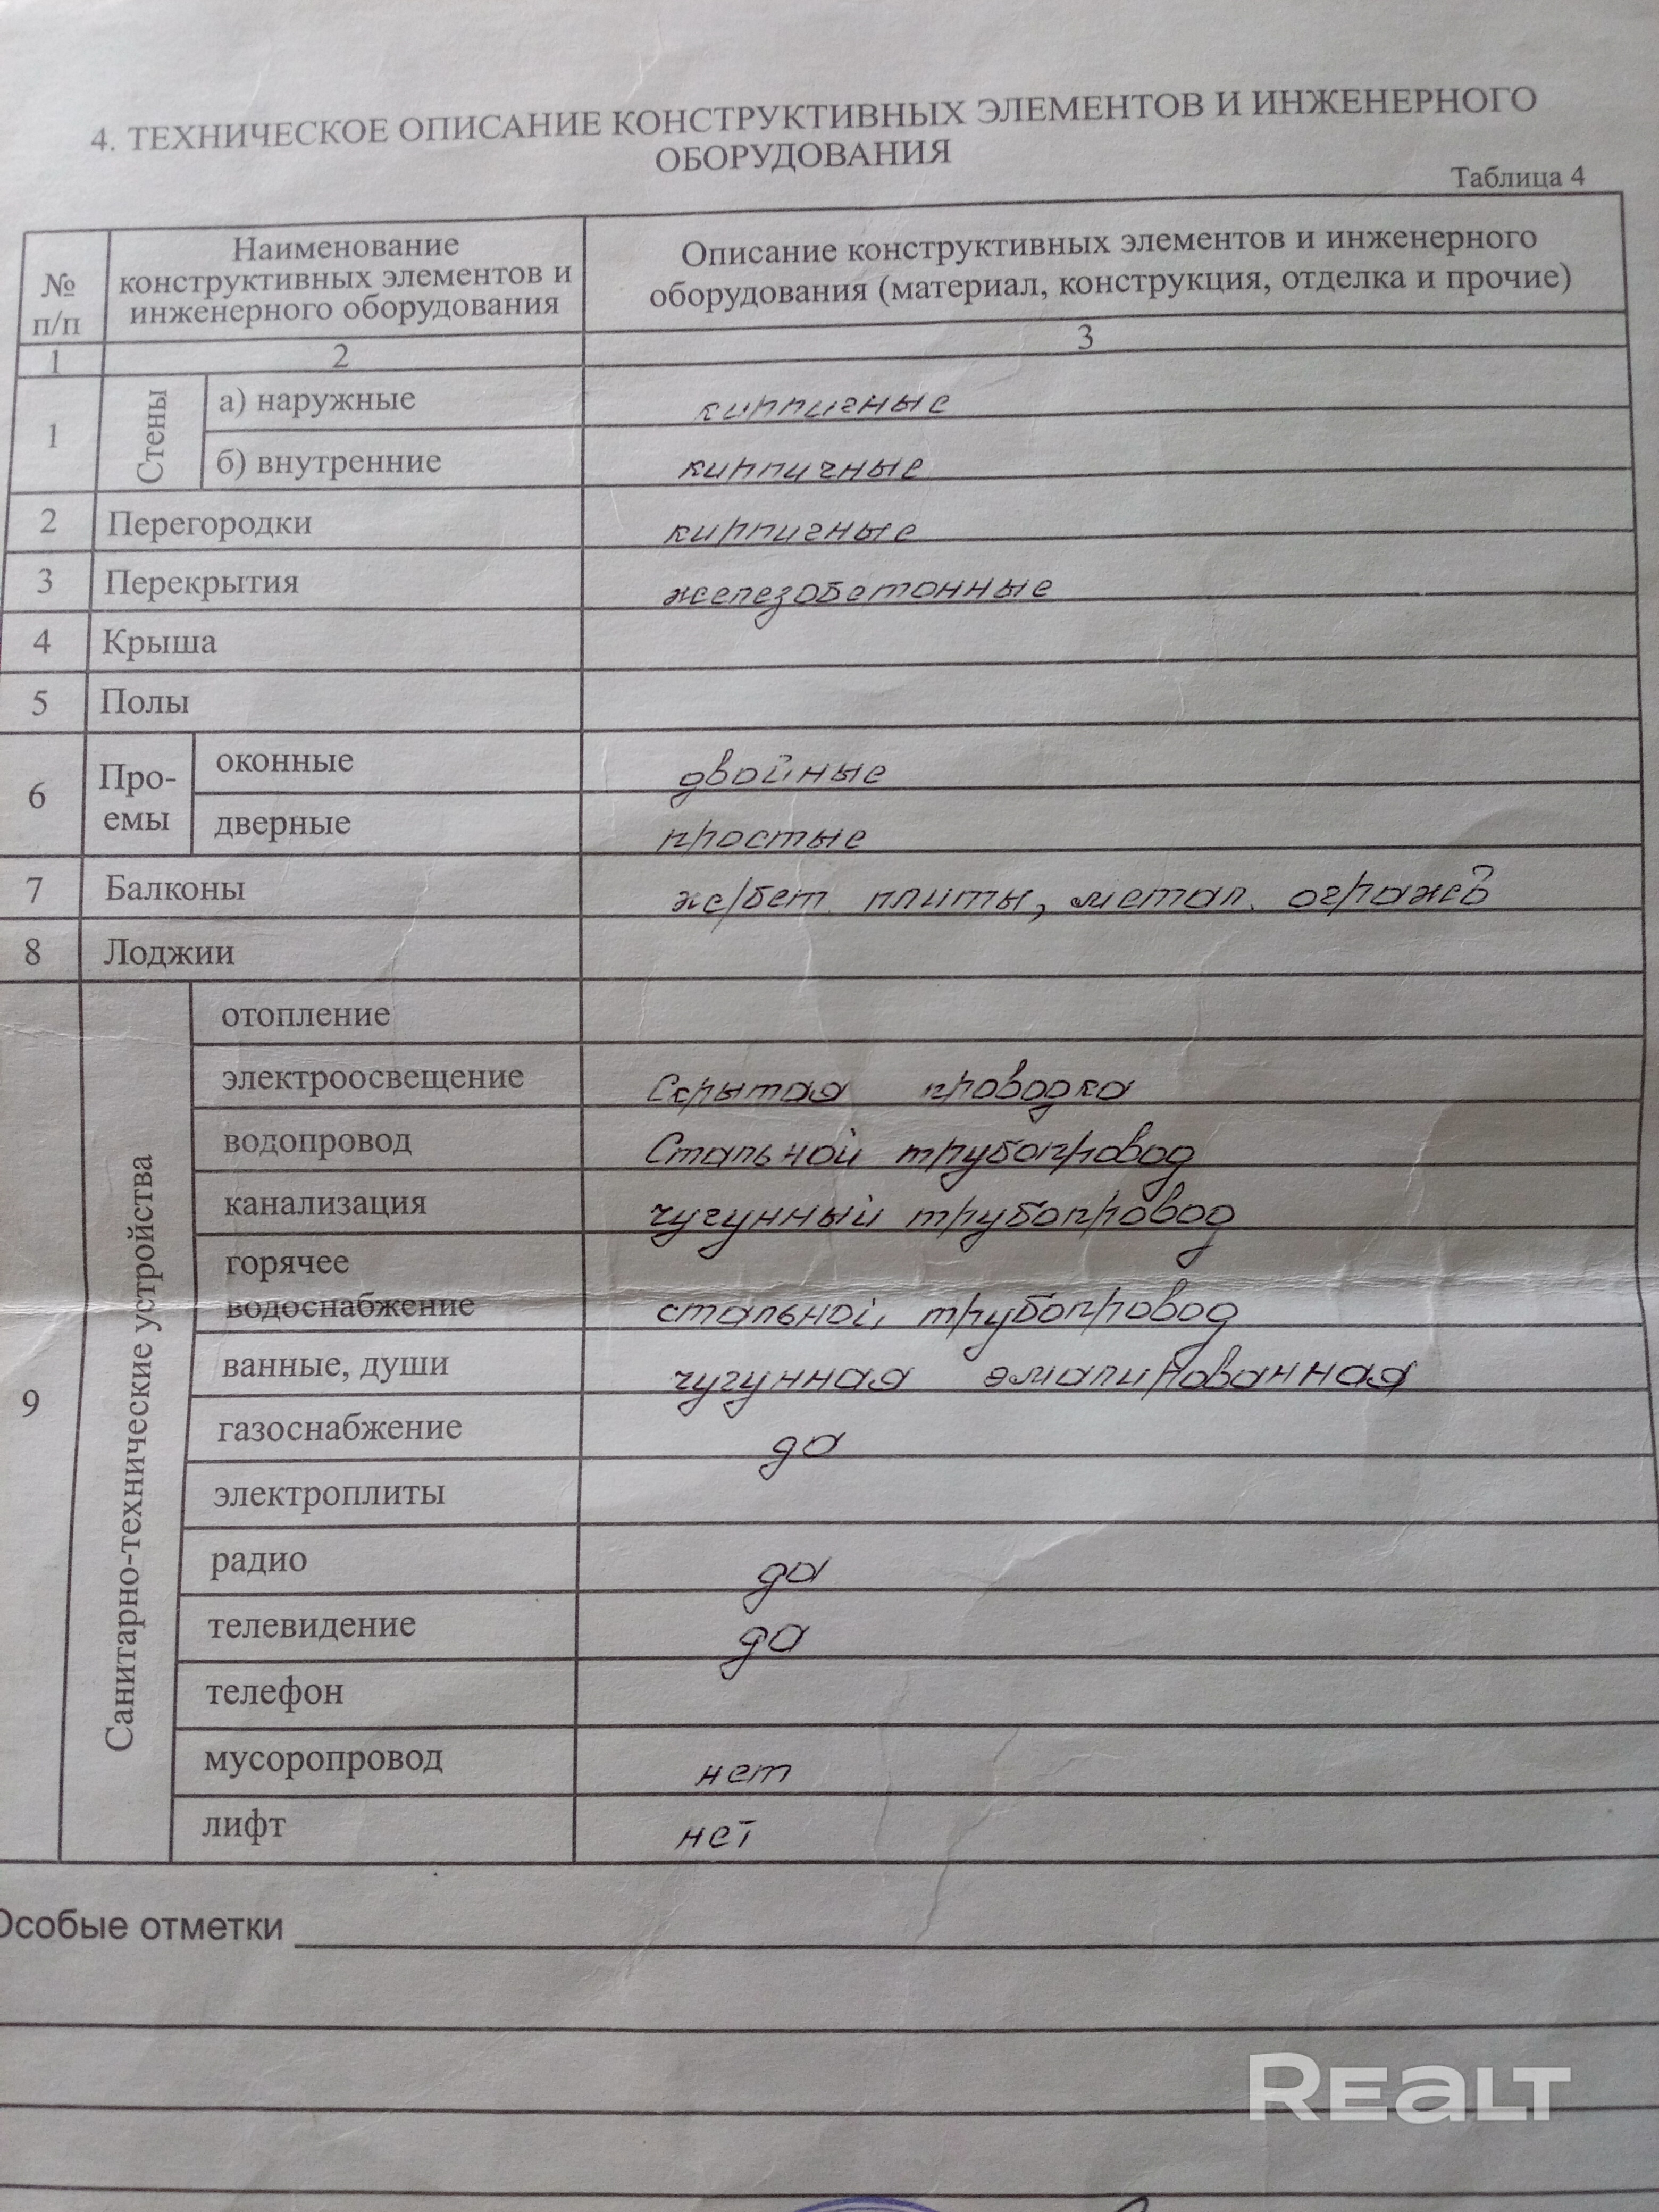 4. ТЕХНИЧЕСКОЕ ОПИСАНИЕ КОНСТРУКТИВНЫХ ЭЛЕМЕНТОВ И ИНЖЕНЕРНОГО
ОБОРУДОВАНИЯ
Таблица 4
№ п/п
Наименование
конструктивных элементов и
инженерного оборудования
Описание конструктивных элементов и инженерного
оборудования (материал, конструкция, отделка и прочие)
1 2 3
1 Стены а) наружные кирпичные
б) внутренние кирпичные
2 Перегородки кирпичные
3 Перекрытия железобетонные
4 Крыша
5 Полы
6 Про-
емы
оконные двойные
дверные простые
7 Балконы ж/бет. плиты, метал.
8 Лоджии
9 Санитарно-технические устройства
отопление
электроосвещение Скрытая проводка
водопровод Стальной трубопровод
канализация чугунный трубопровод
горячее
водоснабжение стальной трубопровод
ванные, души чугунная эмалированная
газоснабжение да
электроплиты
радио да
телевидение да
телефон
мусоропровод нет
лифт нет
Особые отметки
REALT